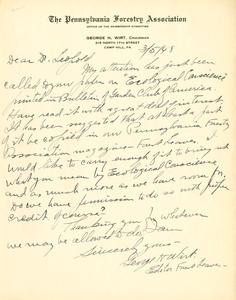 The Pennsylvania Forestry Association
OFFICE OF THE MEMBERSHIP COMMITTEE
GEORGE H. WIRT, CHAIRMAN
313 NORTH 17TH STREET
CAMP HILL, PA.
3/5/48
Dear Dr. Leopold
My attention has just been
called to your paper on Ecological Conscience
printed in Bulletin of Garden Club of America.
Have read it with a great deal of interest.
It has been suggested that at least a part
of it be copied in our Pennsylvania Forestry
Association magazine Forest Leaves. I
would like to carry enough of it to bring out
what you mean by Ecological Conscience
and as much more as we have room for.
Do we have permission to do so with proper
credit of course?
Thanking you for whatever
we may be allowed to do, I am
Sincerely yours
George H Wirt
Editor Forest Leaves